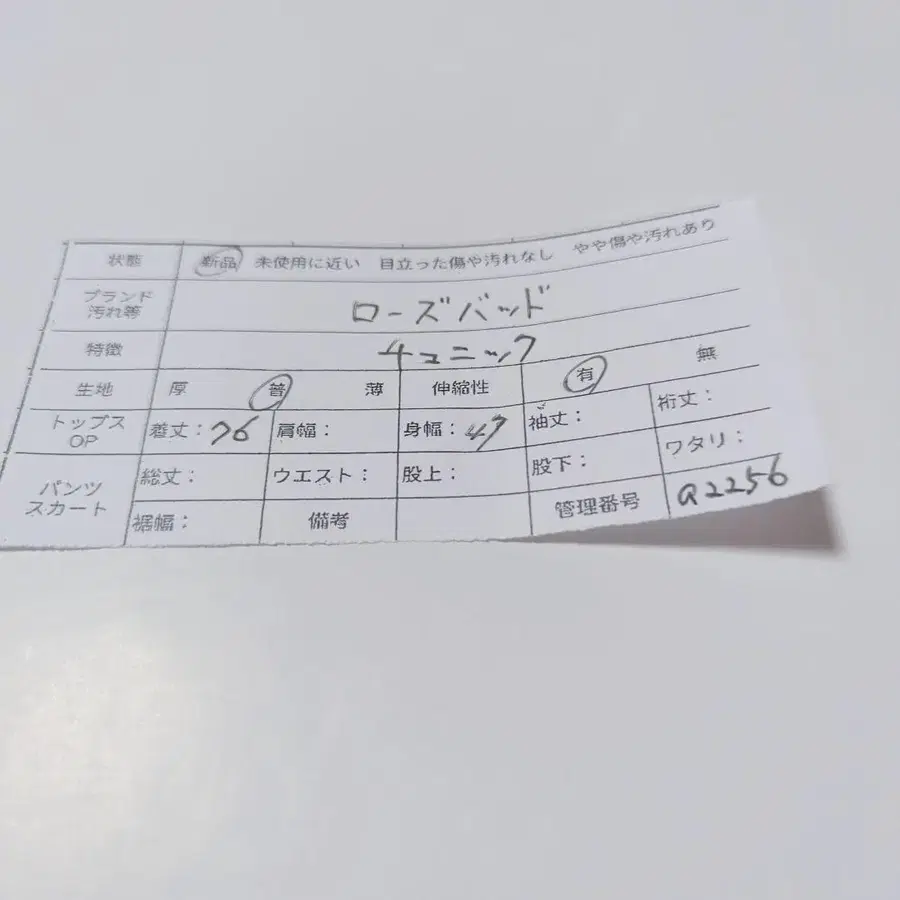 状態 新品 未使用に近い 目立った傷や汚れなし やや傷や汚れあり
ブランド 汚れ等 ローズバッド
特徴 チュニック
生地 厚 普 薄 伸縮性 有 無
トップス OP 着丈：76 肩幅： 身幅：47 袖丈： 裄丈：
パンツ スカート 総丈： ウエスト： 股上： 股下： ワタリ：
裾幅： 備考 管理番号 a2256